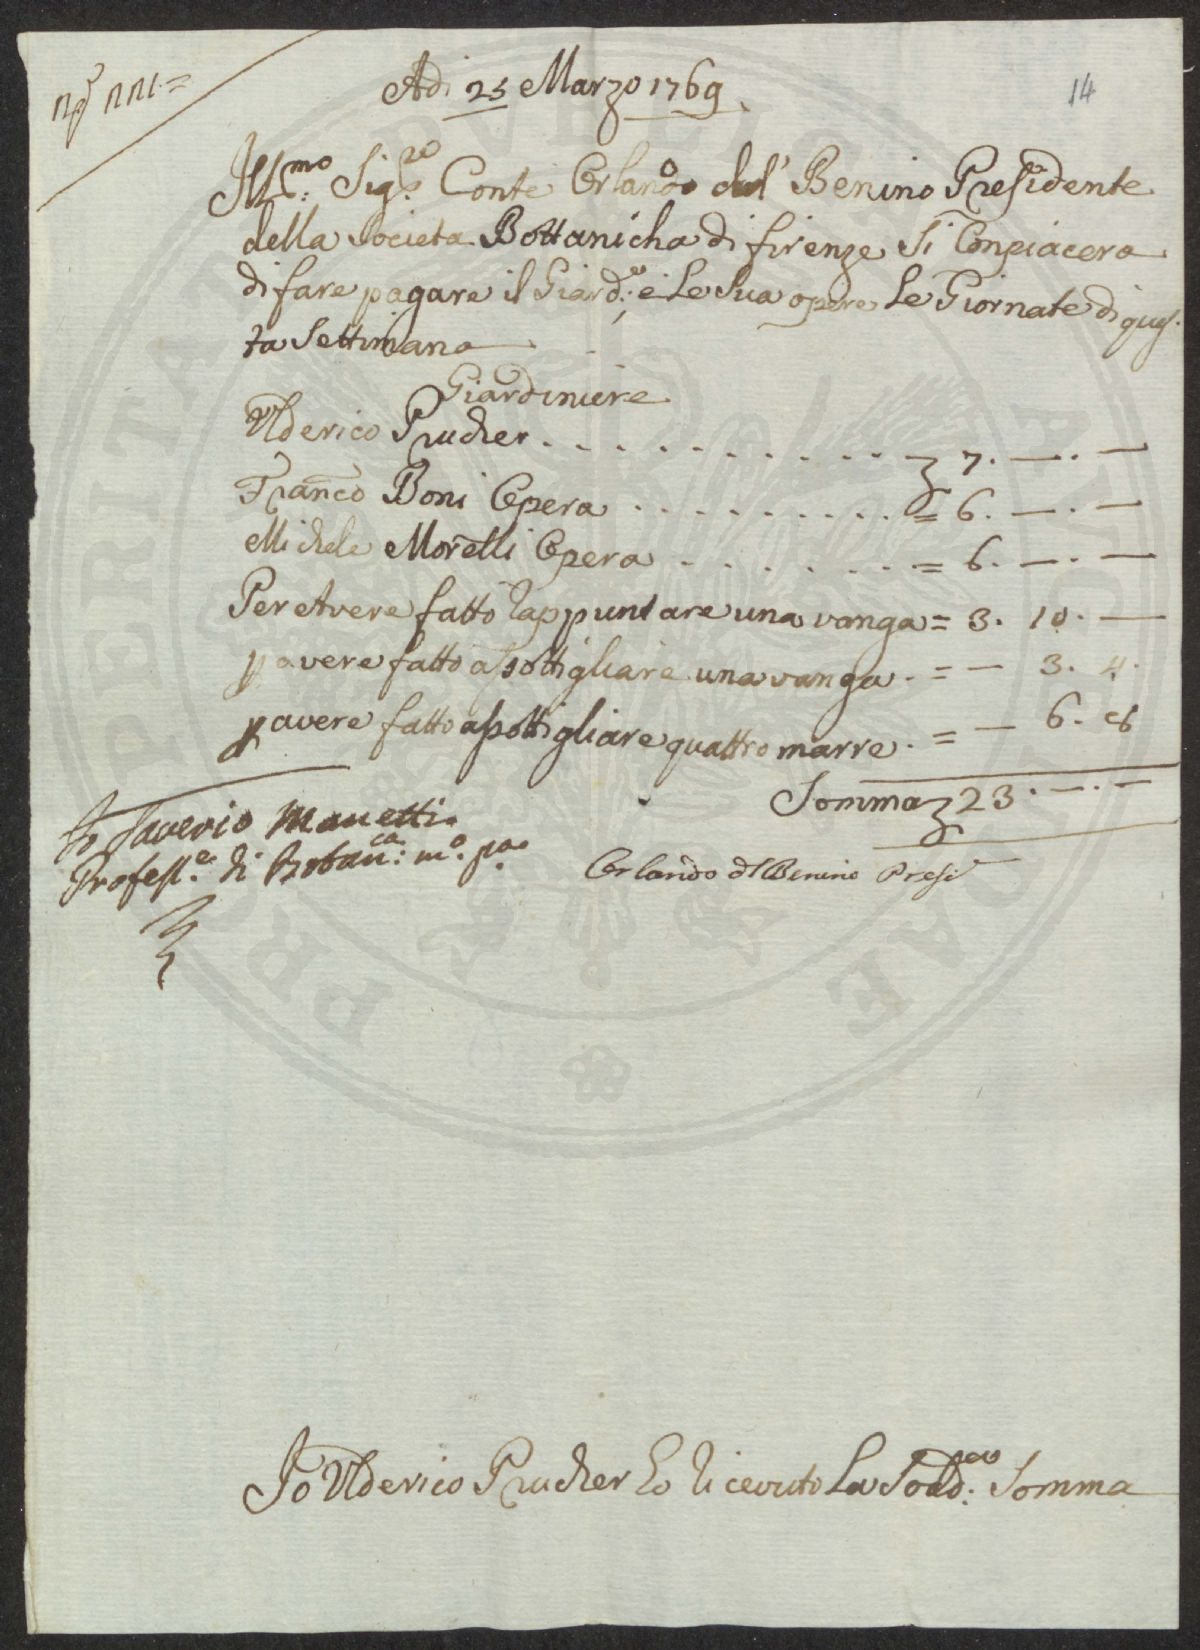 14
Adi 25 Marzo 1769
Ill:mo Sig:re Conte Orlando del' Benino Presidente
della Società Bottanicha di firenze Si Conpiacera
di fare pagare il Giard:e e Le Sua opere Le Giornate di ques-
ta Settimana
Giardiniere
Ulderico Prucher . . . . . . . . . . 7. —. —
Fran:co Boni Opera . . . . . . . . . = 6. —. —
Michele Morelli Opera . . . . . . . = 6. —. —
Per Avere fatto rappuntare una vanga = 3. 10. —
p avere fatto assottigliare una vanga . = — 3. 4.
p avere fatto assottigliare quattro marre . = — 6. 8
Somma 23. —. —
Io Saverio Manetti
Profess:e di Botan:ca m:o p:a
Orlando del Benino Presi
Io Ulderico Prucher ho riceuto La Sodd: Somma
PRO PUBLICA AVGENDAE